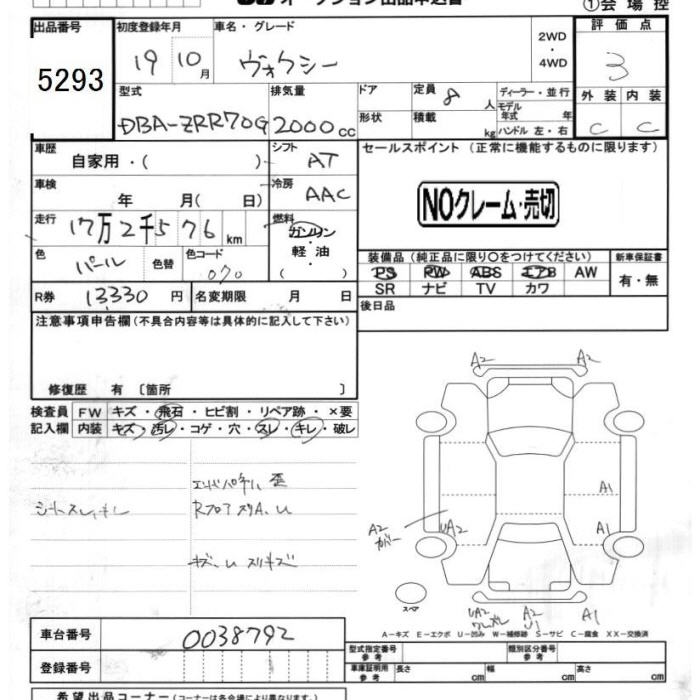 オークション出品申込書
①会場控
出品番号
5293
初度登録年月
19 10月
車名・グレード
ヴォクシー
2WD
・
4WD
評価点
3
型式
DBA-ZRR70G
排気量
2000cc
ドア
形状
定員
8人
積載
kg
ディーラー・並行
モデル年式 年
ハンドル 左・右
外装 内装
C C
車歴
自家用・( )
シフト
AT
セールスポイント (正常に機能するものに限ります)
車検
年 月( 日)
冷房
AAC
NOクレーム・売切
走行
17万2千576km
燃料
ガソリン
軽油
( )
色
パール
色替
色コード
070
装備品 (純正品に限り○をつけてください)
PS PW ABS エアB AW
SR ナビ TV カワ
新車保証書
有・無
R券
13330円
名変期限 月 日
後日品
注意事項申告欄 (不具合内容等は具体的に記入して下さい)
修復歴 有 〔箇所 〕
検査員記入欄
FW キズ・飛石・ヒビ割・リペア跡・×要
内装 キズ・汚レ・コゲ・穴・スレ・キレ・破レ
シートスレ、キレ
エンドパネル 歪
RフロアスリA、U
キズ、U スリキズ
A2 A2
A1
A1
A2
カバー
UA2
スペア
UA2 A2 A1
U1
A-キズ E-エクボ U-凹み W-補修跡 S-サビ C-腐食 XX-交換済
車台番号
0038792
登録番号
型式指定番号
参考
類別区分番号
参考
車庫証明用
参考
長さ cm 幅 cm 高さ cm
希望出品コーナー (コーナーは各会場により異なります。)